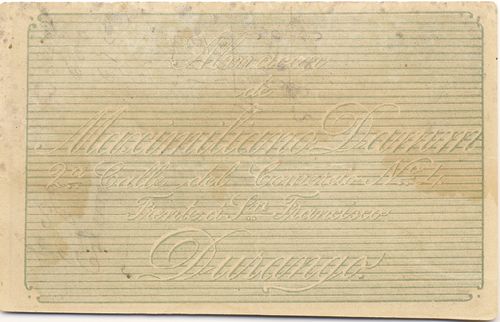 Almacen
de
Maximiliano Damm
2ª Calle del Comercio Nº 1.
Frente á Sn Francisco
Durango.